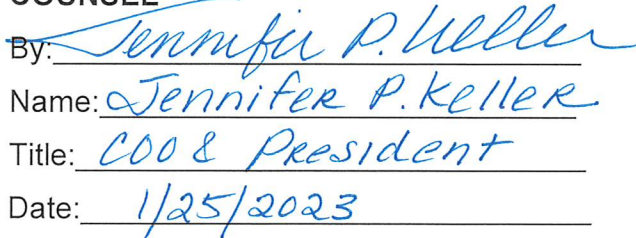 COUNSEL
By: Jennifer P. Keller
Name: Jennifer P. Keller
Title: COO & President
Date: 1/25/2023